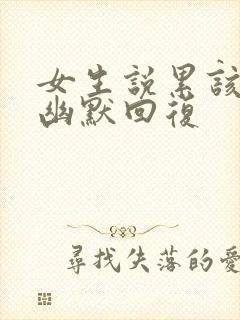 女生說累該
幽默回復
尋找失落的愛